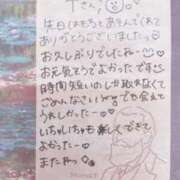 Tさん♡
本日はもちとあそんでくれて
ありがとうございましたっ
お久しぶりでしたねー
お元気そうでよかったです
時間短いのしか取れなくて
ごめんなさいっでも会えて
うれしかったー♡
いちゃいちゃも楽しくできて
よかったー
またねっ
MONET